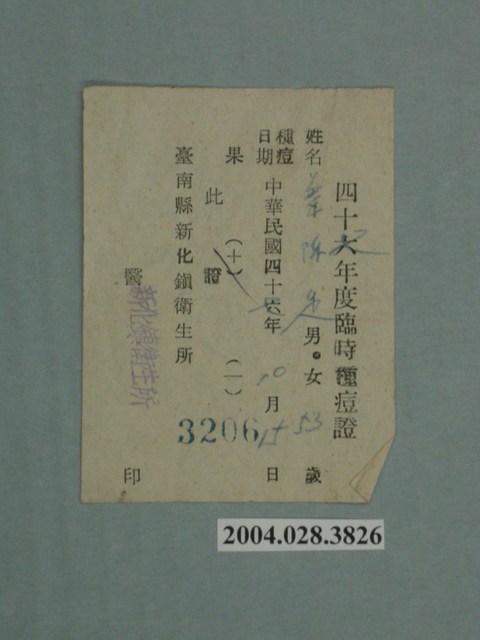 四十六年度臨時種痘證
姓名 蔡陳 男・女 53 歲
種痘日期 中華民國四十六年 10 月 15 日
果 (十) (一)
此證
臺南縣新化鎮衛生所
醫 印
新化鎮衛生所
3206
2004.028.3826